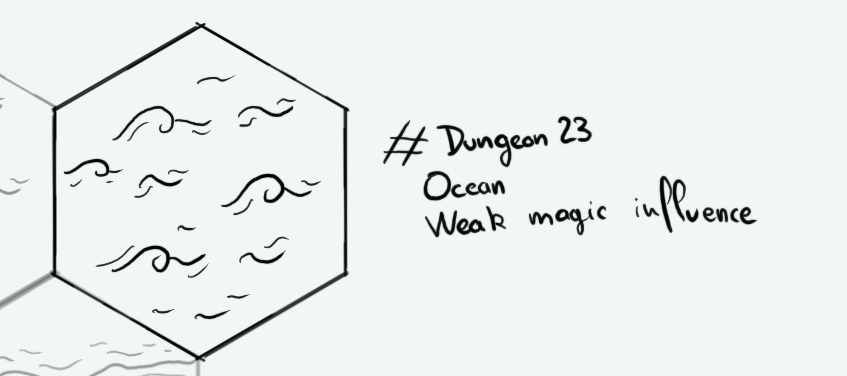 # Dungeon 23
Ocean
Weak magic influence